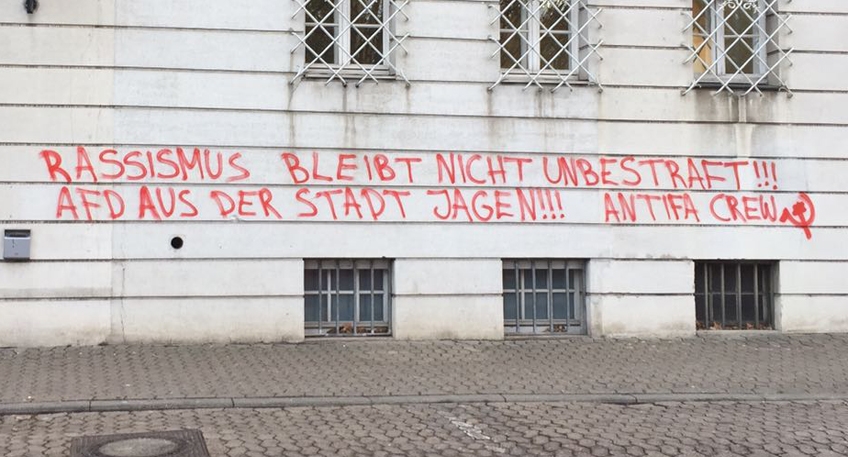 RASSISMUS BLEIBT NICHT UNBESTRAFT!!!
AFD AUS DER STADT JAGEN!!! ANTIFA CREW